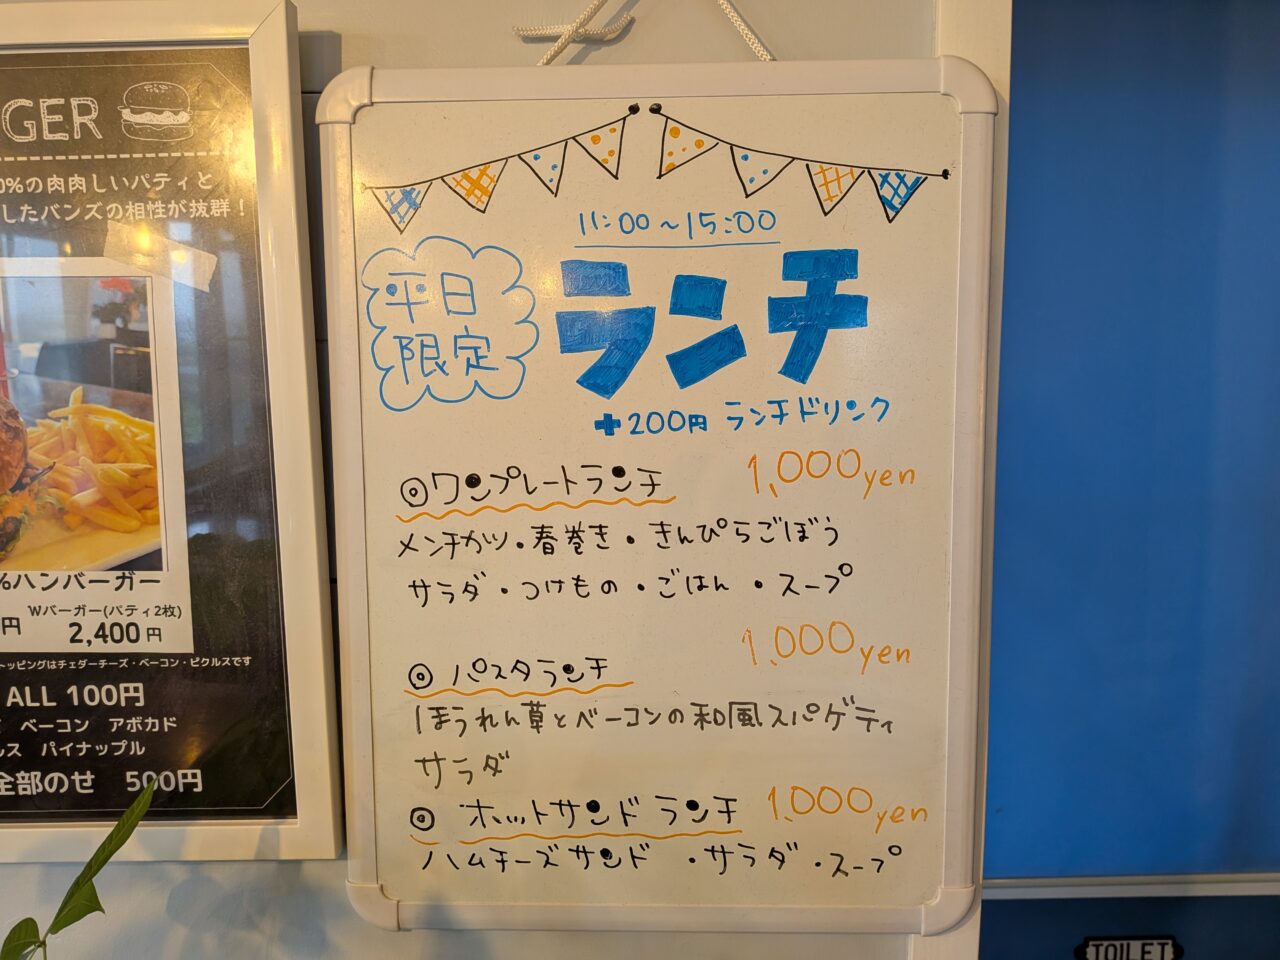 GER
0%の肉肉しいパティと
したバンズの相性が抜群！
%ハンバーガー
円
Wバーガー(パティ2枚)
2,400円
トッピングはチェダーチーズ・ベーコン・ピクルスです
ALL 100円
ベーコン アボカド
ルス パイナップル
全部のせ 500円
11:00～15:00
平日
限定
ランチ
+200円 ランチドリンク
◎ワンプレートランチ 1,000yen
メンチカツ・春巻き・きんぴらごぼう
サラダ・つけもの・ごはん・スープ
1,000yen
◎パスタランチ
ほうれん草とベーコンの和風スパゲティ
サラダ
◎ホットサンドランチ 1,000yen
ハムチーズサンド・サラダ・スープ
TOILET